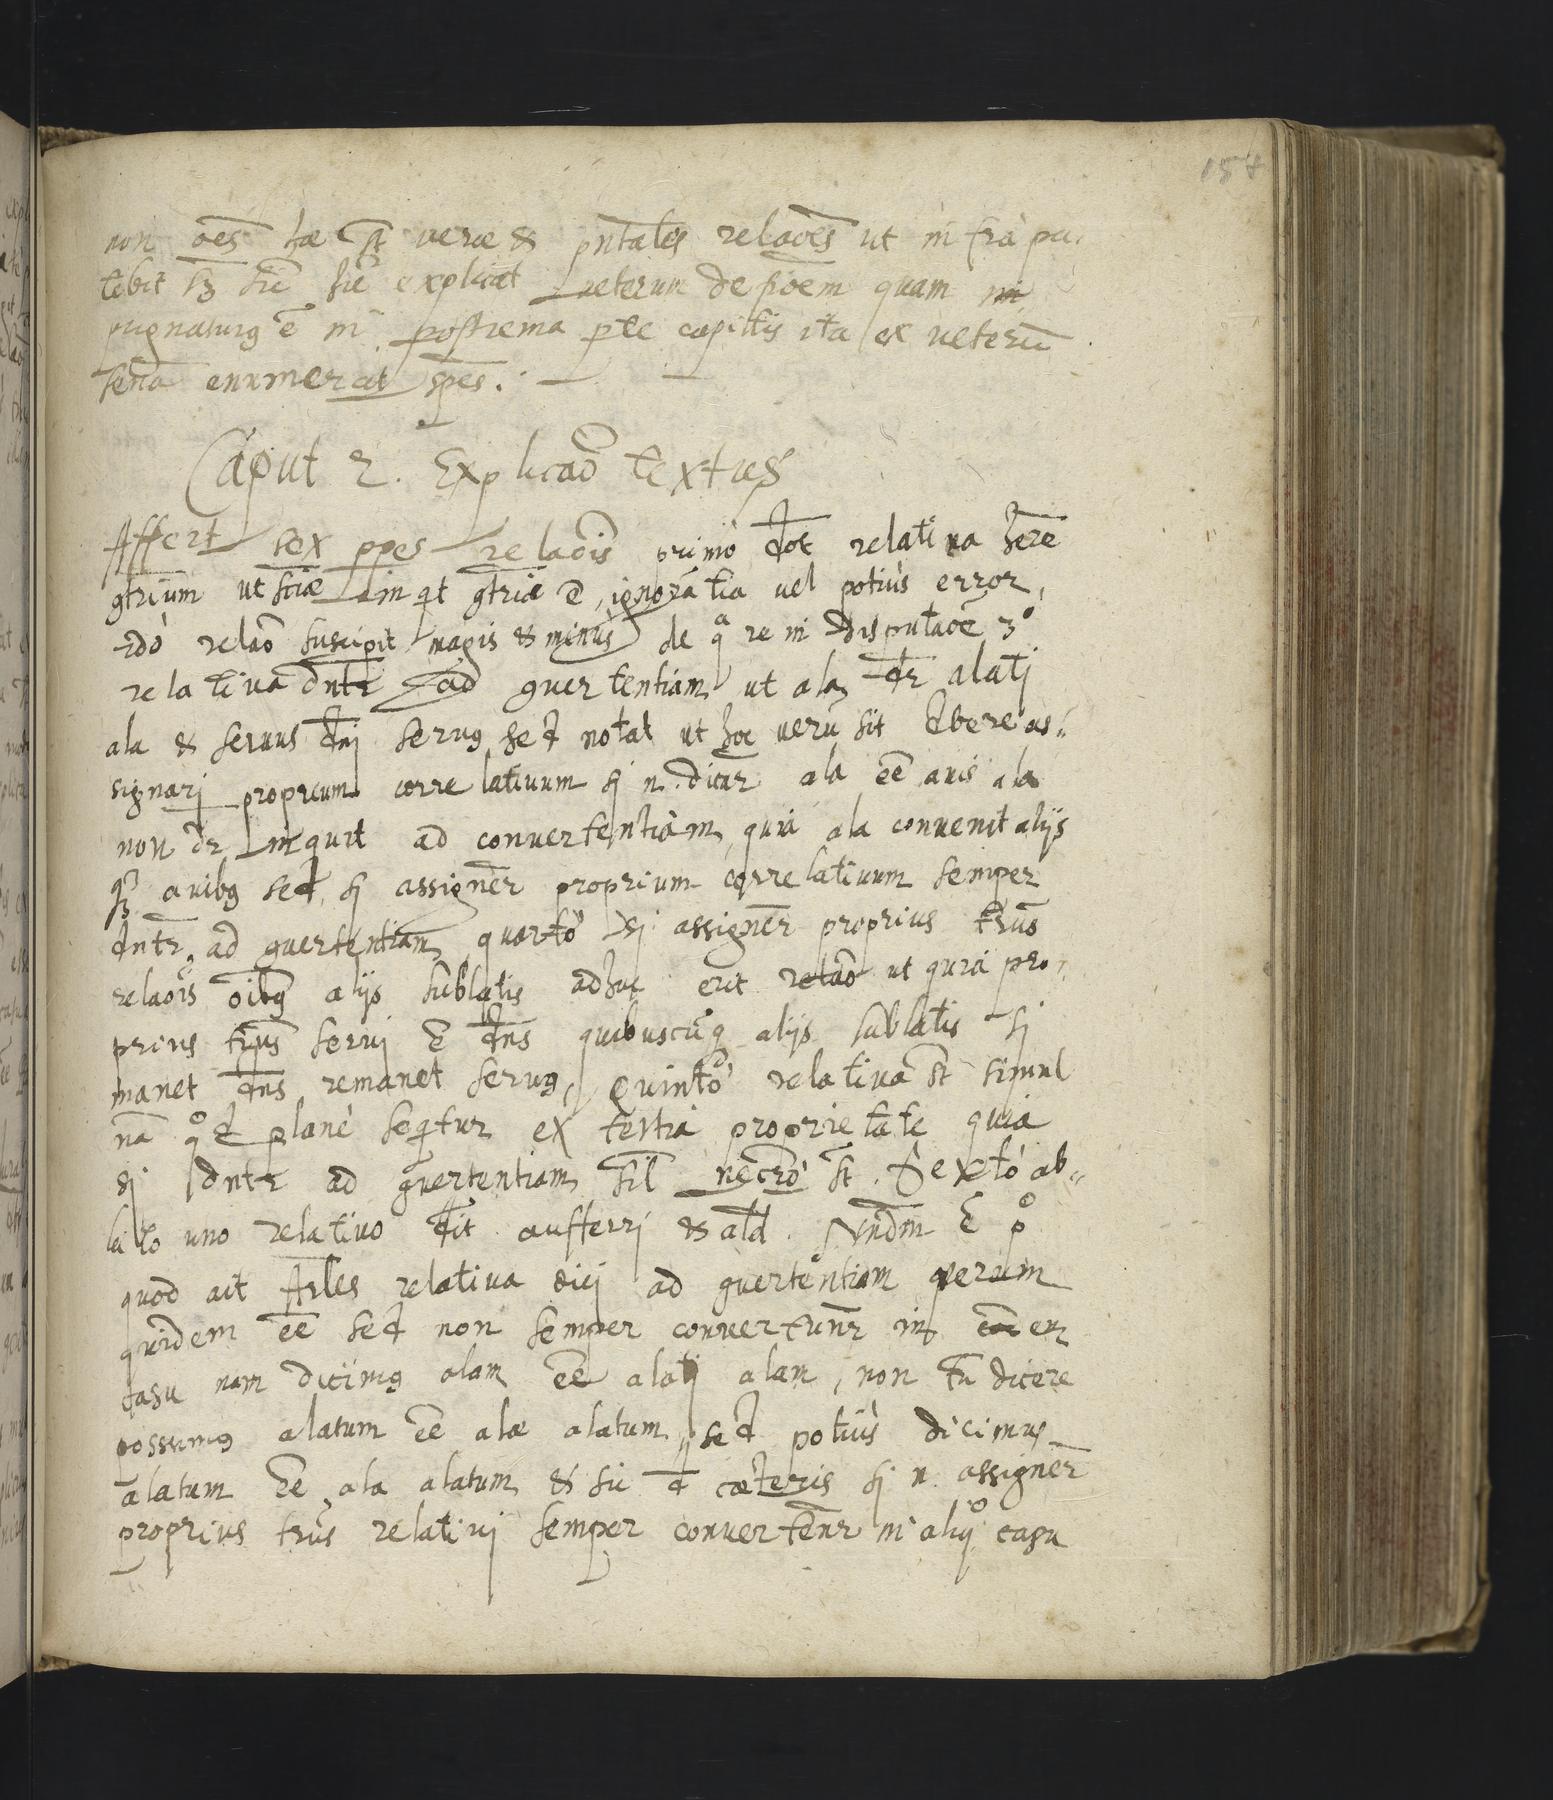 154
non oēs hæ st̄ veræ & p̄ntales relaōes ut infrà pa-
tebit sȝ sic̄ hic explicat veterum de fīōem quam im
pugnaturꝰ ē in postrema p̄te capitis ita ex veterū
sen̄a enumerat sp̄es.
Caput 2. Explicaō textus
Affert sex pp̄es relaōis primò d̄ot relativa h̄ere
9trium ut sc̄iæ inqt 9triæ ē ignorātia vel potiùs error,
2dò relaō suscipit magis & minus de qa re in disputaōe 3o
relativa dn̄tr ad 9vertentiam ut ala dr̄ alatj
ala & servus dn̄j servꝰ sed notat ut hoc verū sit d̄bere as-
signarj proprium correlativum sj n. dicat̄r ala eē avis ala
non dr̄ inquit ad convertentiam, quia ala convenit alijs
qȝ avibꝰ sed, sj assigner̄ proprium correlativum semper
dn̄tr ad 9vertentiam quartò si assigner̄ proprius tr̄us
relaōis oībꝰ alijs sublatis adhuc erit relaō ut quia pro-
prius tr̄us servj ē dn̄s quibuscūq alijs sublatis sj
manet dn̄s remanet servꝰ, Quintò relativa st̄ simul
nā qod planè seqtur ex tertia proprietate quia
sj dn̄tr ad 9vertentiam sil̄ necrō st̄. Sextò ab-
lato uno relativo d̄it aufferrj & ald̄. Nn̄dm ē po
quod ait Arles relativa dicj ad 9vertentiam verum
quidem eē sed non semper convertun̄r in eodem
casu nam dicimꝰ alam eē alatj alam, non tn̄ dicere
possumꝰ alatum eē alæ alatum, sed potiùs dicimus
alatum eē ala alatum & sic d̄ cæteris sj n. assigner̄
proprius tr̄us relativj semper converten̄r in aliqo casu